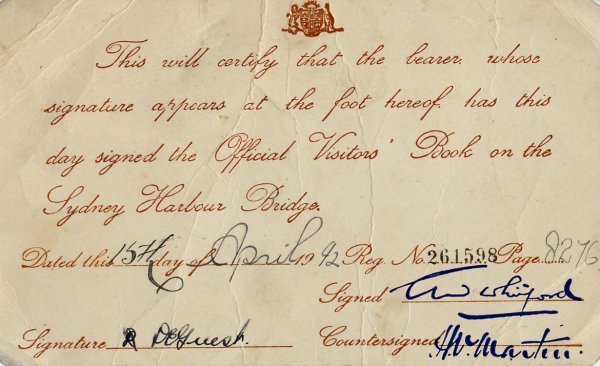 This will certify that the bearer, whose
signature appears at the foot hereof, has this
day signed the Official Visitors' Book on the
Sydney Harbour Bridge.
Dated this 15th day of April 1942 Reg. No. 261598 Page 8276
Signed
Signature R Countersigned H V Martin.